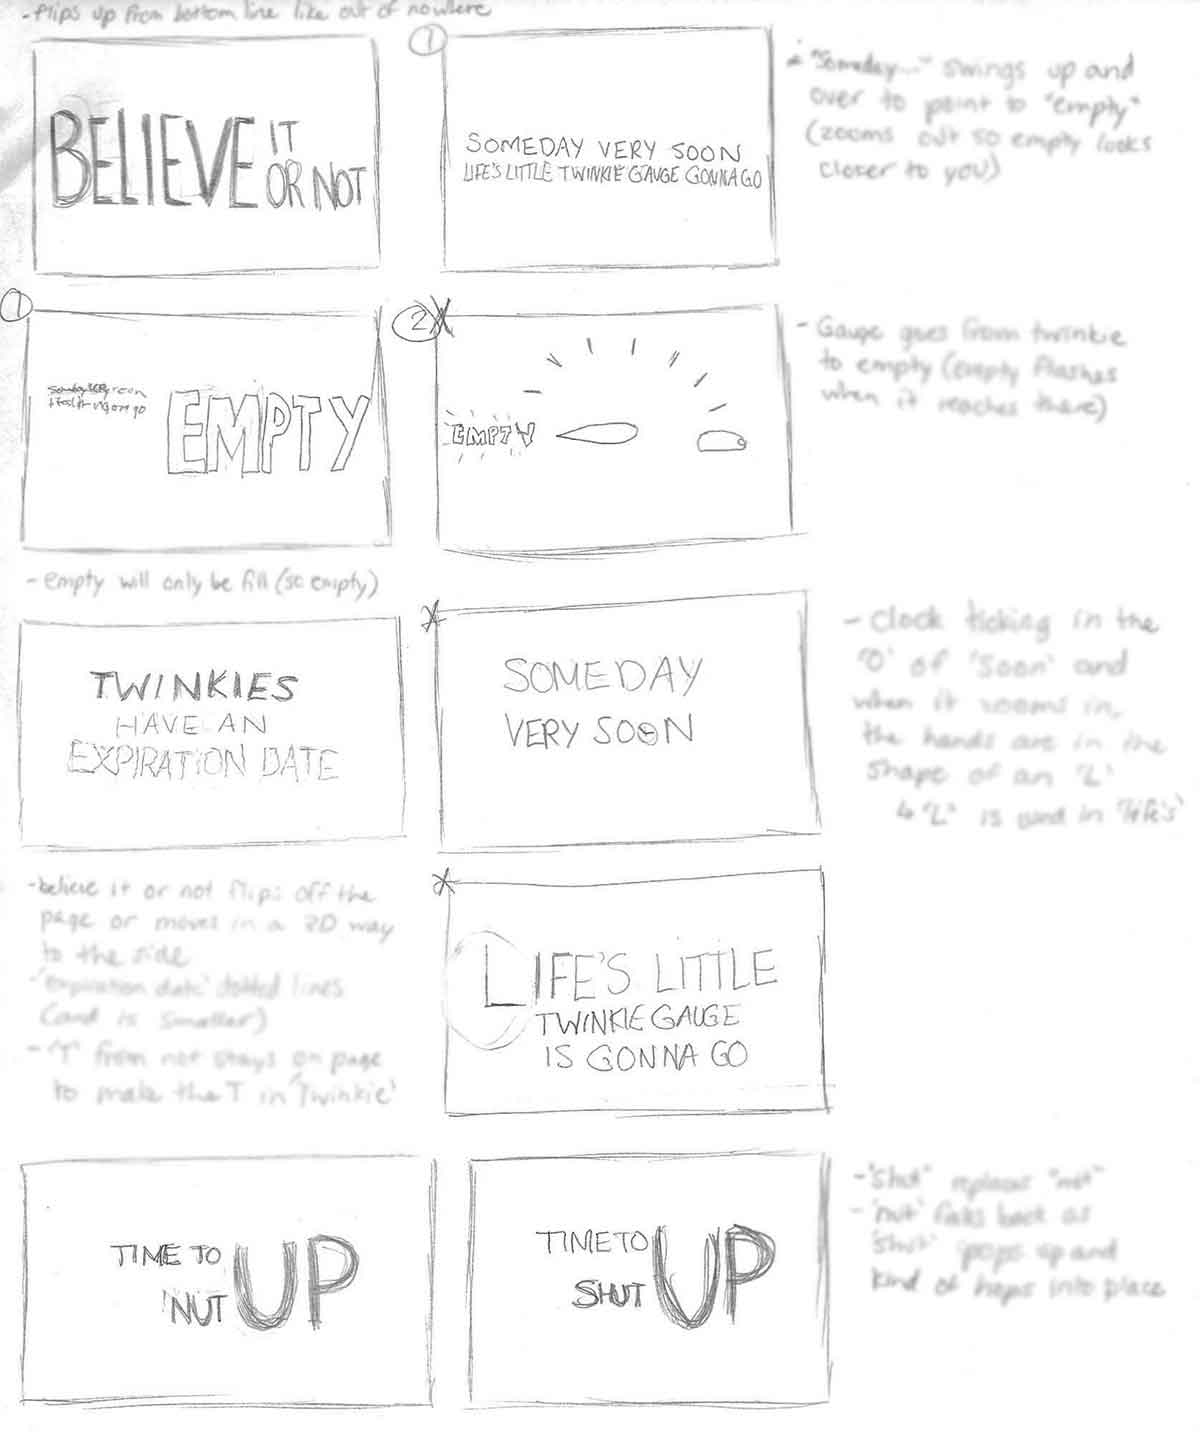 -flips up from bottom line like out of nowhere
BELIEVE IT
OR NOT
1
SOMEDAY VERY SOON
LIFE'S LITTLE TWINKIE GAUGE GONNA GO
* "Someday..." swings up and
over to point to "empty"
(zooms out so empty looks
closer to you)
1
EMPTY
2
EMPTY
- Gauge goes from twinkie
to empty (empty flashes
when it reaches there)
- empty will only be fill (so empty)
TWINKIES
HAVE AN
EXPIRATION DATE
SOMEDAY
VERY SOON
- Clock ticking in the
'O' of 'Soon' and
when it zooms in,
the hands are in the
shape of an 'L'
↳ 'L' is used in 'life's'
-believe it or not flips off the
page or moves in a 2D way
to the side
-'expiration date' dotted lines
(and is smaller)
- 'T' from not stays on page
to make the T in 'Twinkie'
LIFE'S LITTLE
TWINKIE GAUGE
IS GONNA GO
TIME TO
NUT UP
TIME TO
SHUT UP
-'shut' replaces "nut"
- 'nut' falls back as
'shut' pops up and
kind of hops into place